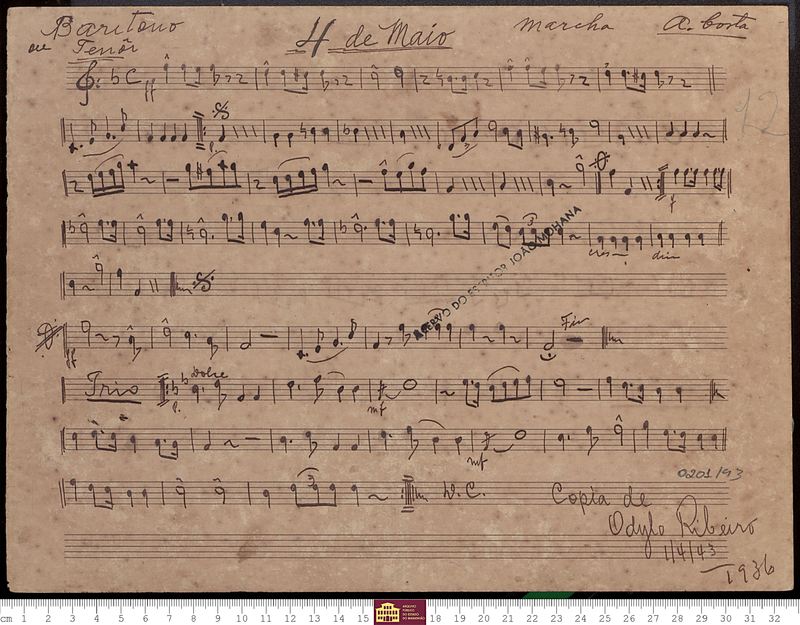 Baritono
ou Tenôr
4 de Maio
Marcha
A. Costa
12
ff
p.
f
cres-
dim
ACERVO DO ESCRITOR JOÃO MOHANA
ff
Fim
Trio
Dolce
p.
mf
mf
0201/93
D. C.
Copia de
Odylo Ribeiro
1/4/43
1936
cm 1 2 3 4 5 6 7 8 9 10 11 12 13 14 15
ARQUIVO PÚBLICO DO ESTADO DO MARANHÃO
18 19 20 21 22 23 24 25 26 27 28 29 30 31 32